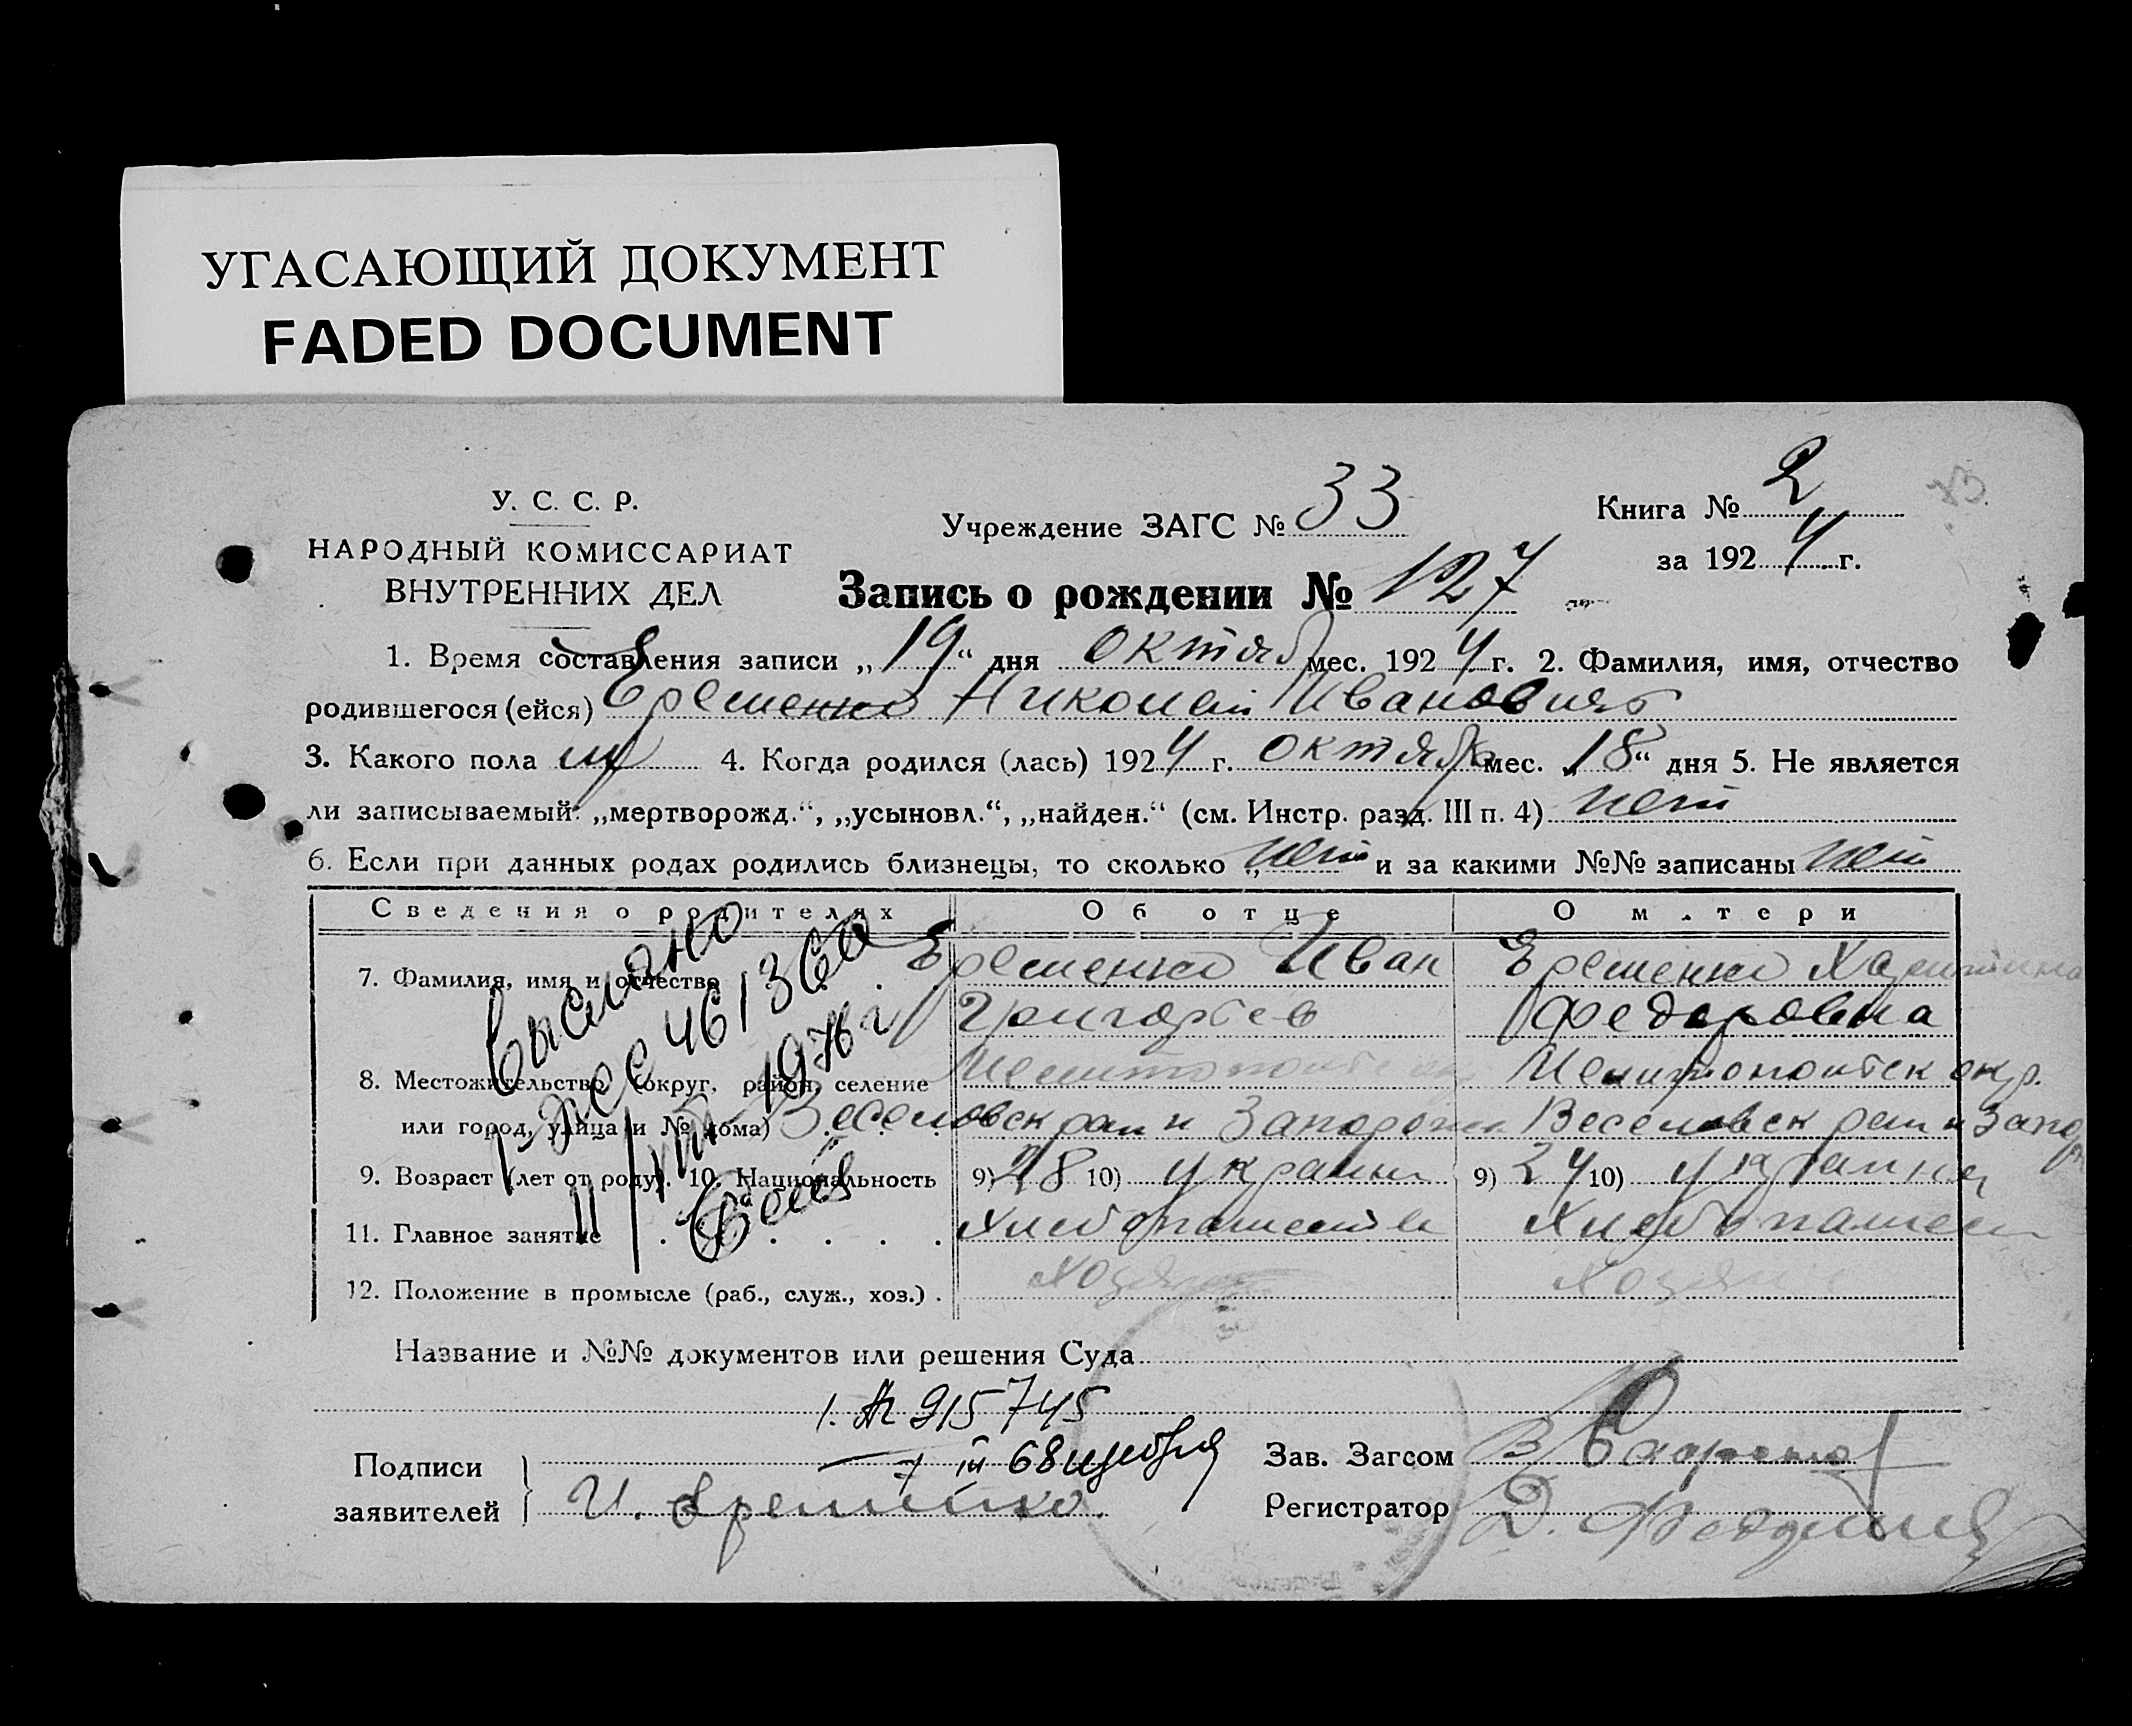 УГАСАЮЩИЙ ДОКУМЕНТ
FADED DOCUMENT
У. С. С. Р.
НАРОДНЫЙ КОМИССАРИАТ
ВНУТРЕННИХ ДЕЛ
Учреждение ЗАГС № 33
Книга № 2
за 1924 г.
Запись о рождении № 127
1. Время составления записи „19“ дня октяб мес. 1924 г. 2. Фамилия, имя, отчество
родившегося (ейся) Еременко Николай Иванович
3. Какого пола м 4. Когда родился (лась) 1924 г. октября мес. „18“ дня 5. Не является
ли записываемый: „мертворожд.“, „усыновл.“, „найден.“ (см. Инстр. разд. III п. 4) нет
6. Если при данных родах родились близнецы, то сколько „ нет и за какими №№ записаны нет
Сведения о родителях Об отце О м.тери
7. Фамилия, имя и отчество Еременко Иван Еременко Харитина
Григорьев Федоровна
8. Местожительство (округ, район, селение Мелитопольск Мелитопольск окр.
или город, улица и № дома) Веселовск район Запорож Веселовск район Запор
9. Возраст (лет от роду). 10. Национальность 9) 28 10) украин 9) 24 10) украинка
11. Главное занятие Хлебопашеств Хлебопашес
12. Положение в промысле (раб., служ., хоз.) Хозяин Хозяин
Выслано
461360
1976 г
Название и №№ документов или решения Суда
915745
68
Подписи
заявителей И. Еременко
Зав. Загсом
Регистратор Д.